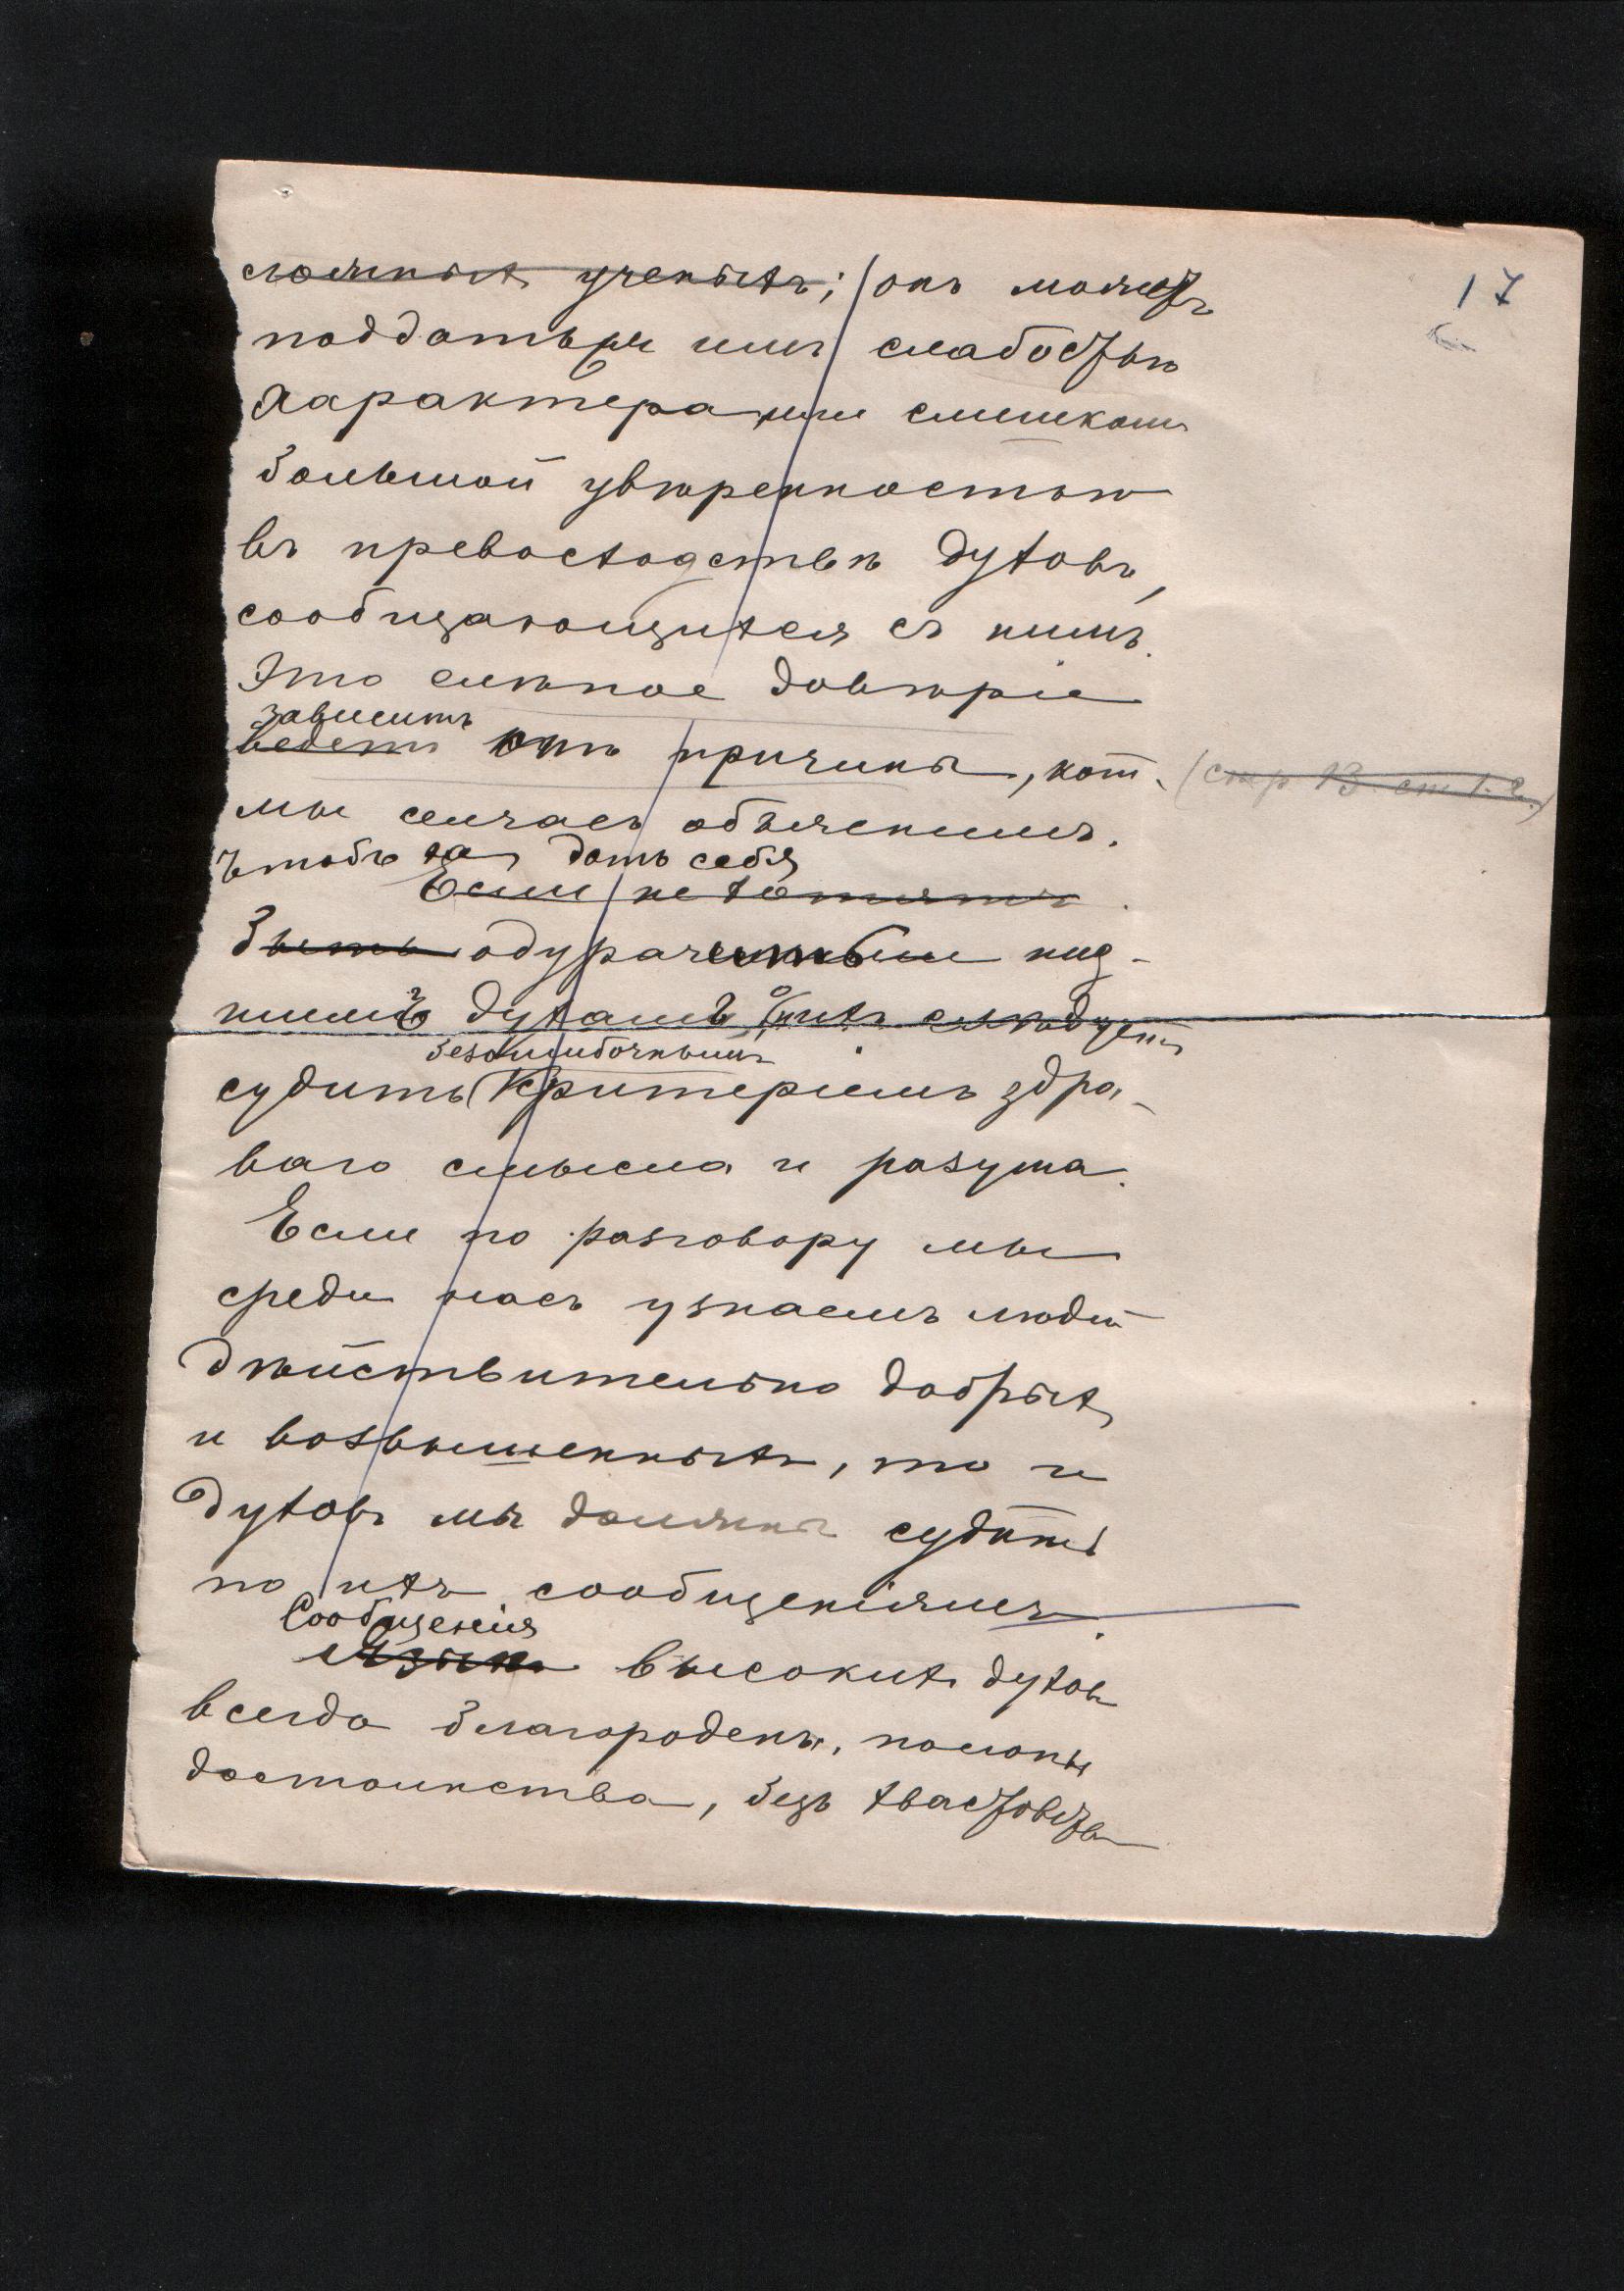 17
ложныхъ ученыхъ; онъ можетъ
поддаться имъ слабостью
характера, или слишкомъ
большой увѣренностью
въ превосходствѣ духовъ,
сообщающихся съ нимъ.
Это слѣпое довѣріе
зависитъ
ведетъ отъ причины, кот.
(стр 13 ст 1. 2.)
мы сейчасъ объяснимъ.
Чтобъ не дать себя
Если не хотятъ
быть одурачить низ-
шимъ духамъ, ихъ слѣдуетъ
безошибочнымъ
судить критеріемъ здра-
ваго смысла и разума.
Если по разговору мы
среди насъ узнаемъ людей
дѣйствительно добрыхъ
и возвышенныхъ, то и
духовъ мы должны судить
по ихъ сообщеніямъ.
Сообщенія
Языкъ высокихъ духовъ
всегда благороденъ, полонъ
достоинства, безъ хвастовства